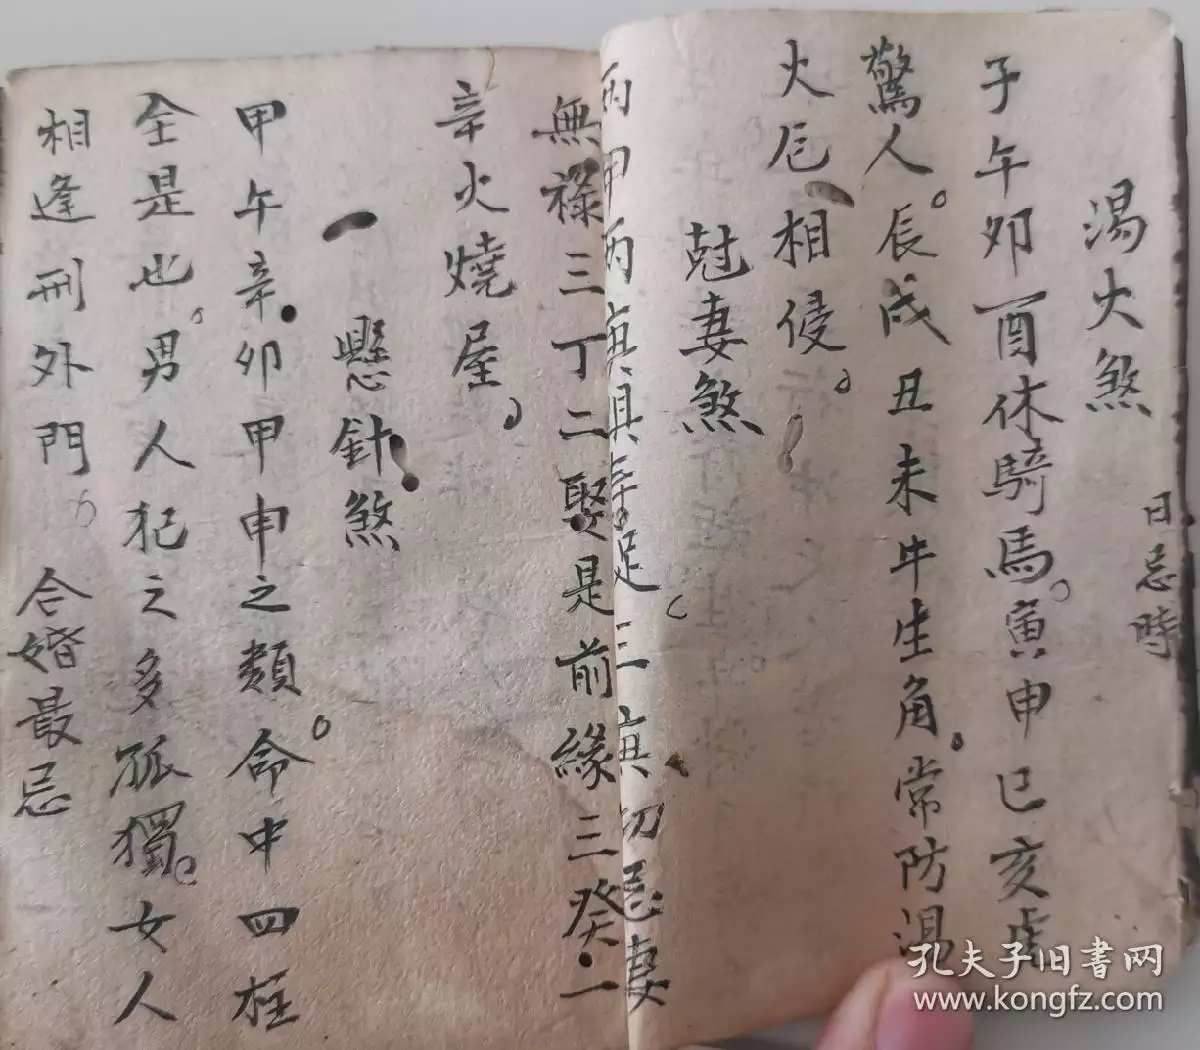 湯火煞
日忌時
子午卯酉休騎馬寅申巳亥虎
驚人辰戌丑未牛生角常防湯
火厄相侵
尅妻煞
丙甲丙寅具辛足三寅切忌妻
無祿三丁二娶是前緣三癸一
辛火燒屋
懸針煞
甲午辛卯甲申之類命中四柱
全是也男人犯之多孤獨女人
相逢刑外門 合婚最忌
孔夫子旧书网
www.kongfz.com